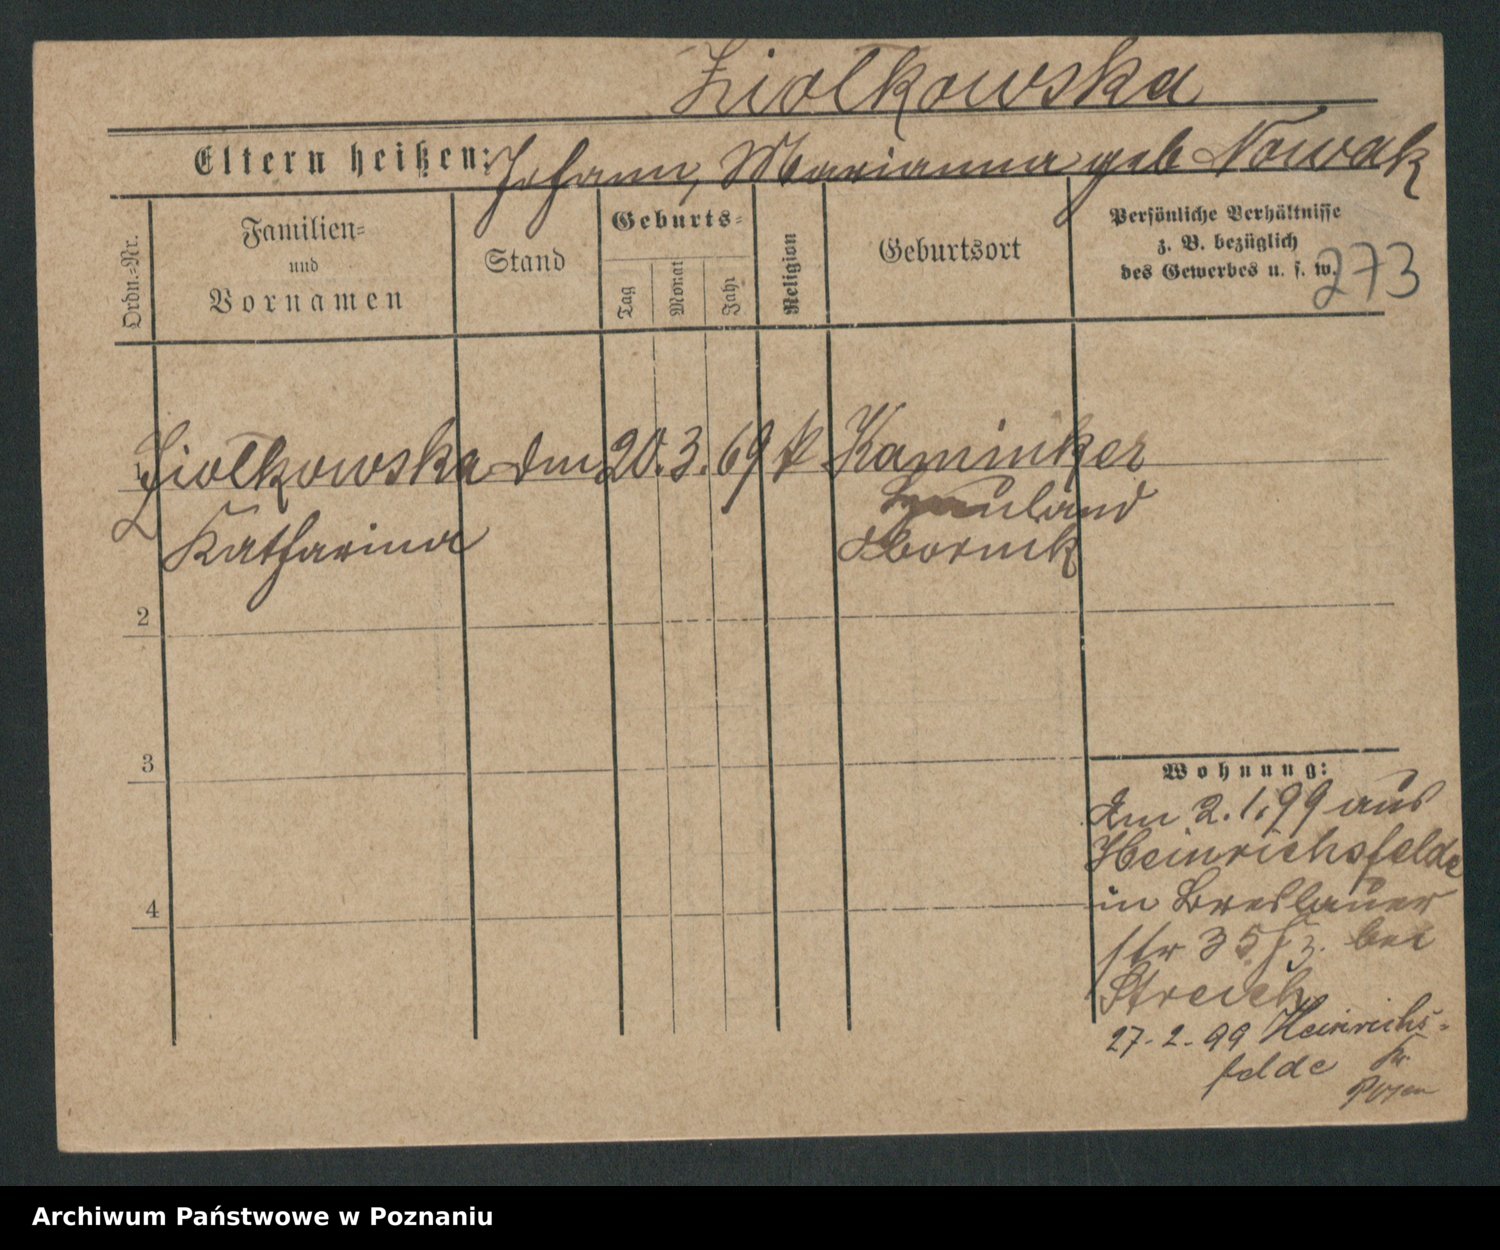 Ziolkowska
Eltern heißen: Johann, Marianna geb Nowak
Ordn.=Nr.
Familien=
und
Vornamen
Stand
Geburts=
Tag
Monat
Jahr
Religion
Geburtsort
Persönliche Verhältnisse
z. B. bezüglich
des Gewerbes u. s. w.
273
1 Ziolkowska 20. 3. 69 k Kaminker
Hauland
Katharina Obornik
2
3
4
Wohnung:
Am 2. 1. 99 aus
Heinrichsfelde
in Breslauer
str 35 bei
Streich
27. 2. 99 Heinrichs-
felde Kr.
Posen
Archiwum Państwowe w Poznaniu